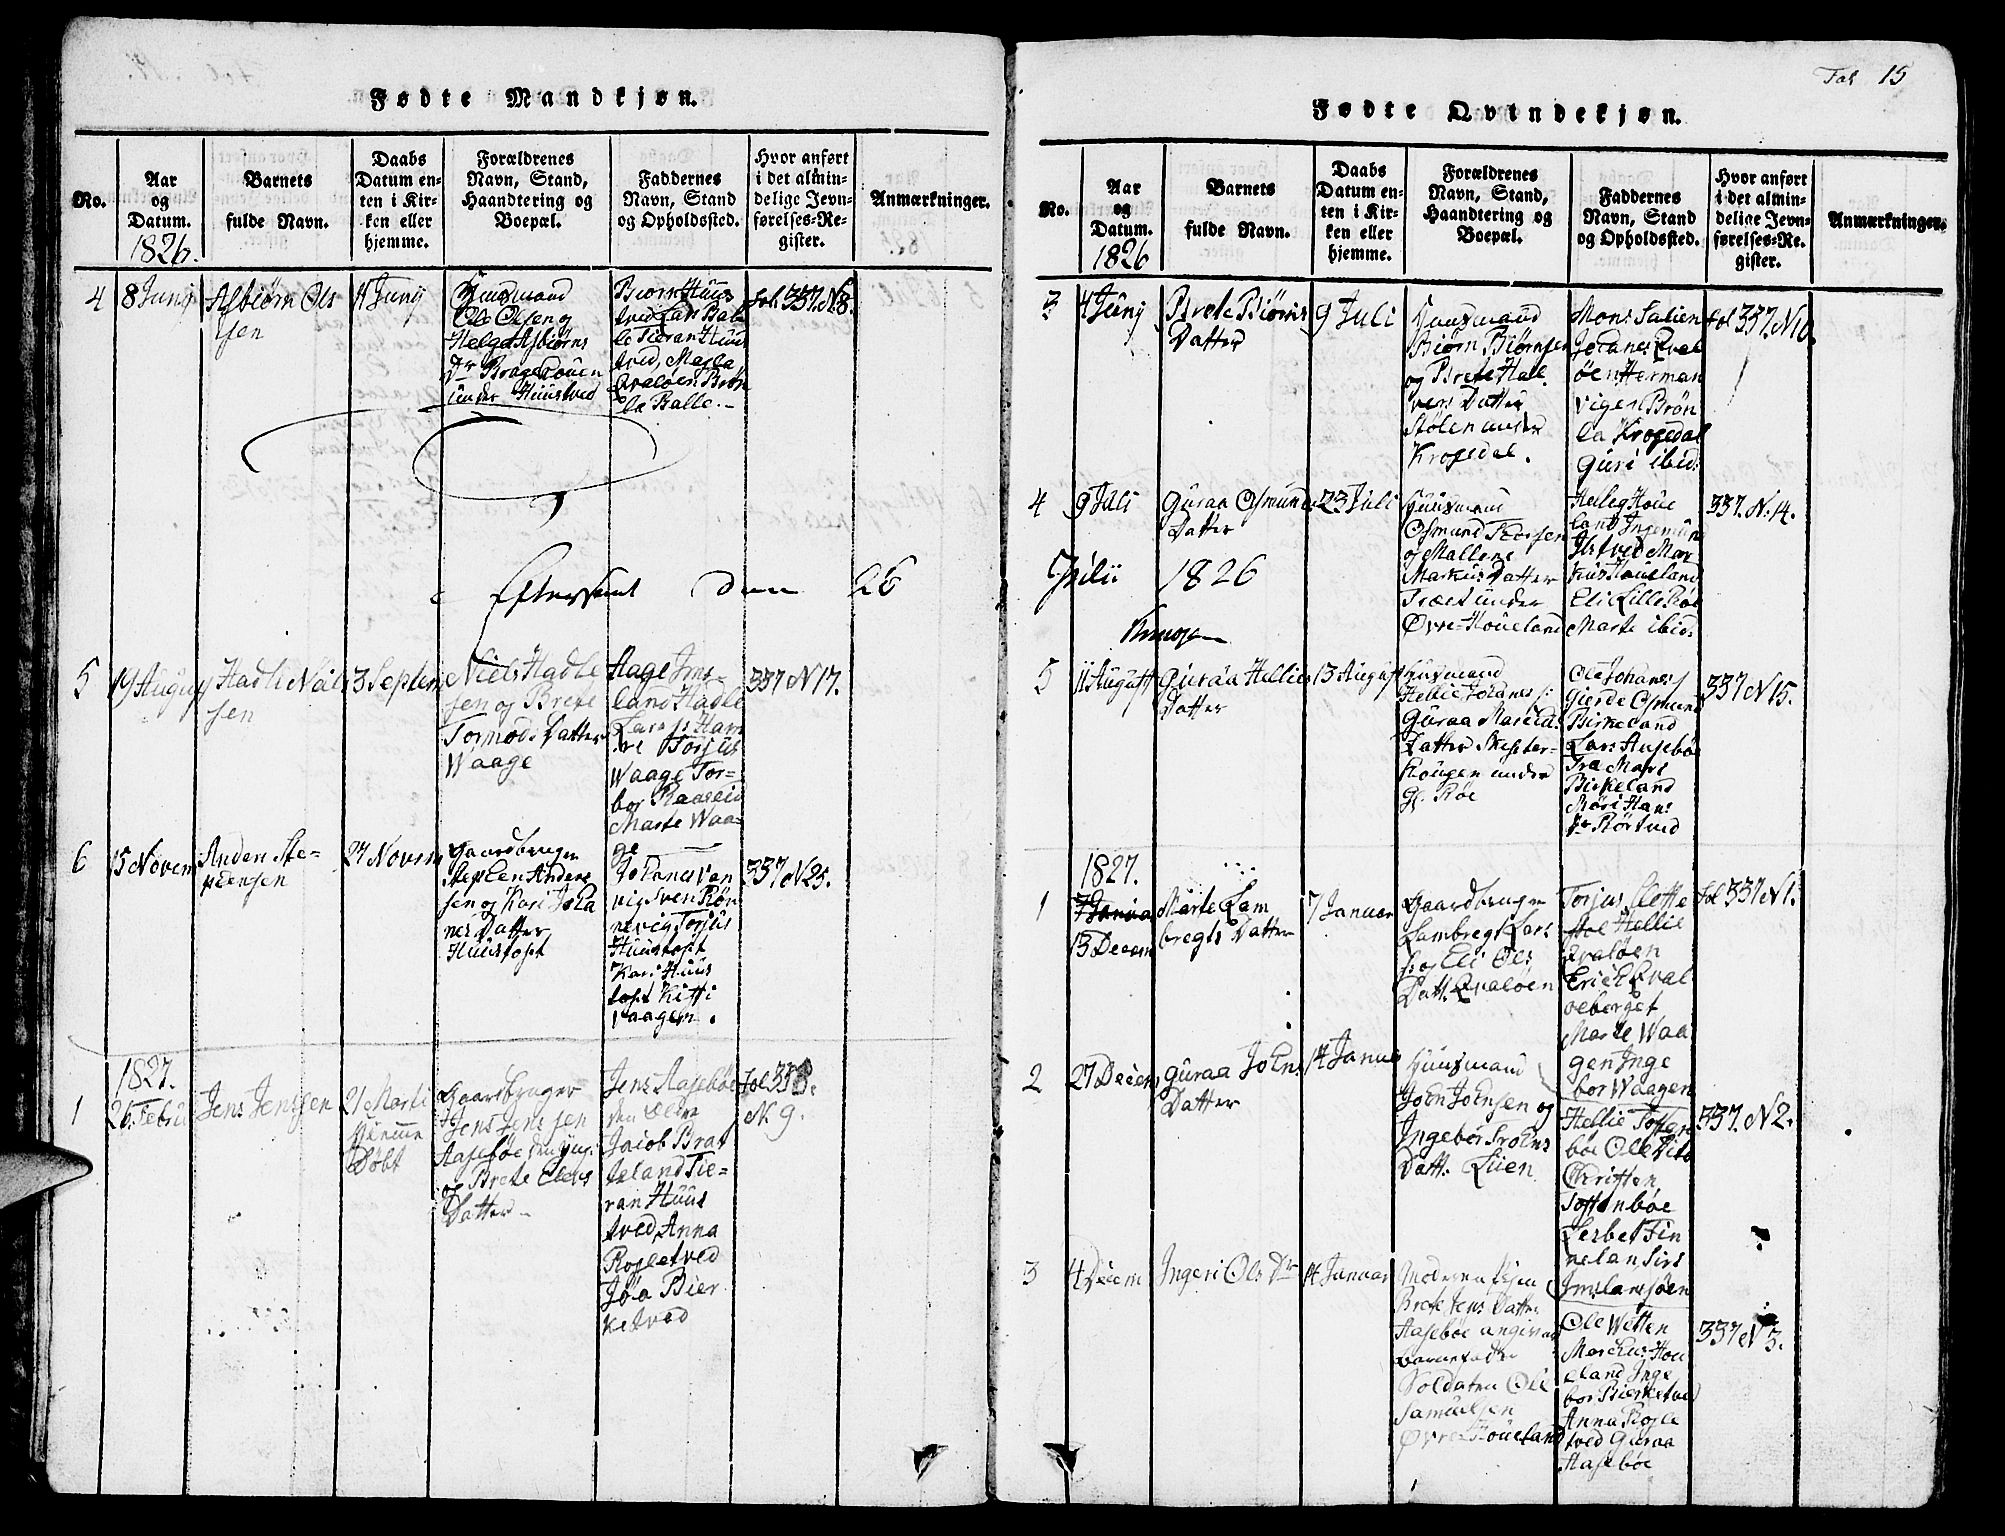 Fødte Mandkjøn.
No.
Aar
og
Datum.
1826.
Barnets
fulde Navn.
Daabs
Datum en-
ten i Kir-
ken eller
hjemme.
Forældrenes
Navn, Stand,
Haandtering og
Boepæl.
Faddernes
Navn, Stand
og Opholdssted.
Hvor anført
i det almin-
delige Jevn-
førelses-Re-
gister.
Anmærkninger.
4
8 Junij
Asbiørn Ols
sen
11 Junij
Huusmand
Ole Olsen og
Helga Asbiørns
Dr
under Huustved
Biørn Huus
tved Lars Bal
le Tieran Huus
tved, Marta
Qvaløen Brøn
la Balle.
fol 337. N 8.
Efterseet den 26
5
19 August
Hadle Nils
sen
3 Septem
Niels Hadle
sen og Brete
Tormods Datter
Waage
Aage Ims-
land Hadle
Torjus
Waage Tor-
bor Raaseid
Marte Waa-
ge
337 N 17.
6
15 Novem
Anders Ste-
phensen
27 Novem
Gaardbruger
Stephen Ander
sen og Kari Joha
nes Datter
Huustoft
Johanes Van
vig Sven Røn
nevig Torjus
Huustoft
Kari Huus
toft Kitti
Vaagen.
337 N 25.
1827.
1
26. Febru
Jens Jenssen
21 Marti
hiemme
Døbt
Gaardbruger
Jens Jenssen
Aasebøe den yng:
og Brete Elevs
Datter
Jens Aasebøe
den eldre
Jacob Brat
teland Tie-
ran Huus
tved, Anna
Rosletved
Jøa Bier
ketved
fol 338.
N. 9.
Fol 15
Fødte Qvindekjøn.
No.
Aar
og
Datum.
1826
Barnets
fulde Navn.
Daabs
Datum en-
ten i Kir-
ken eller
hjemme.
Forældrenes
Navn, Stand,
Haandtering og
Boepæl.
Faddernes
Navn, Stand
og Opholdssted.
Hvor anført
i det almin-
delige Jevn-
førelses-Re-
gister.
Anmærkninger.
3
4 Junij
Brete Biørns
Datter
9 Juli
Huusmand
Biørn Biørnsen
og Brete Hal
vers Datter
Stølen under
Krogedal.
Mons Salien
Johanes Qval
øen Herman
Vigen Brøn
la Krogedal
Guri ibid:
fol 337. N 10.
4
9 Juli
Guraa Osmunds
Datter
23 Juli
Huusmand
Osmund Torsen
og Mallene
Markus Datter
Træet under
Øvre-Houeland
Helleg Houe
land Ingemun
Ilstved Mar
kus Houeland
Eli Lille Røe
Marte ibid:
337. N. 14.
Julii 1826
5
11 August
Guraa Hellies
Datter
13 August
Huusmand
Hellie Johanes s:
Guraa
Datter
under
Gr. Røe
Ole Johanes s
Gierde Osmun
Birkeland
Lars Aasebøe
Birkeland
Hans
Dr Rørtved
337 N 15.
1827.
1
7 Janua
13 Decem
Marte Lam
bregts Datter
7 Januar
Gaardbruger
Lambregt Lars
s og Eli Ols
Datt. Qvaløen
Torjus Slette
støl Hellie
Qvaløen
Erich Qval
oeberget
Marte Waa
gen Inge
bor Waagen
fol 337 N 1.
2
27 Decem
Guraa Johns
Datter
14 Janua
Huusmand
John Johnsen og
Ingebor Srohns
Datt: Liien
Hellie Tøften
bøe Ole Vita
Christen
Toftenbøe
Lesbet Fin
neland Siri
Imslansjøen
337. N 2.
3
4 Decem
Ingeri Ols Dr
14 Januar
Brete Jens Datter
Aasebøe angiven
barnefader
Soldaten Ole
Samuelsen
Øvre Houeland
Ole Wetten
Markus Hou
eland Inge
bor Bierketved
Anna Rosle
tved Guraa
Aasebøe
337 N 3.